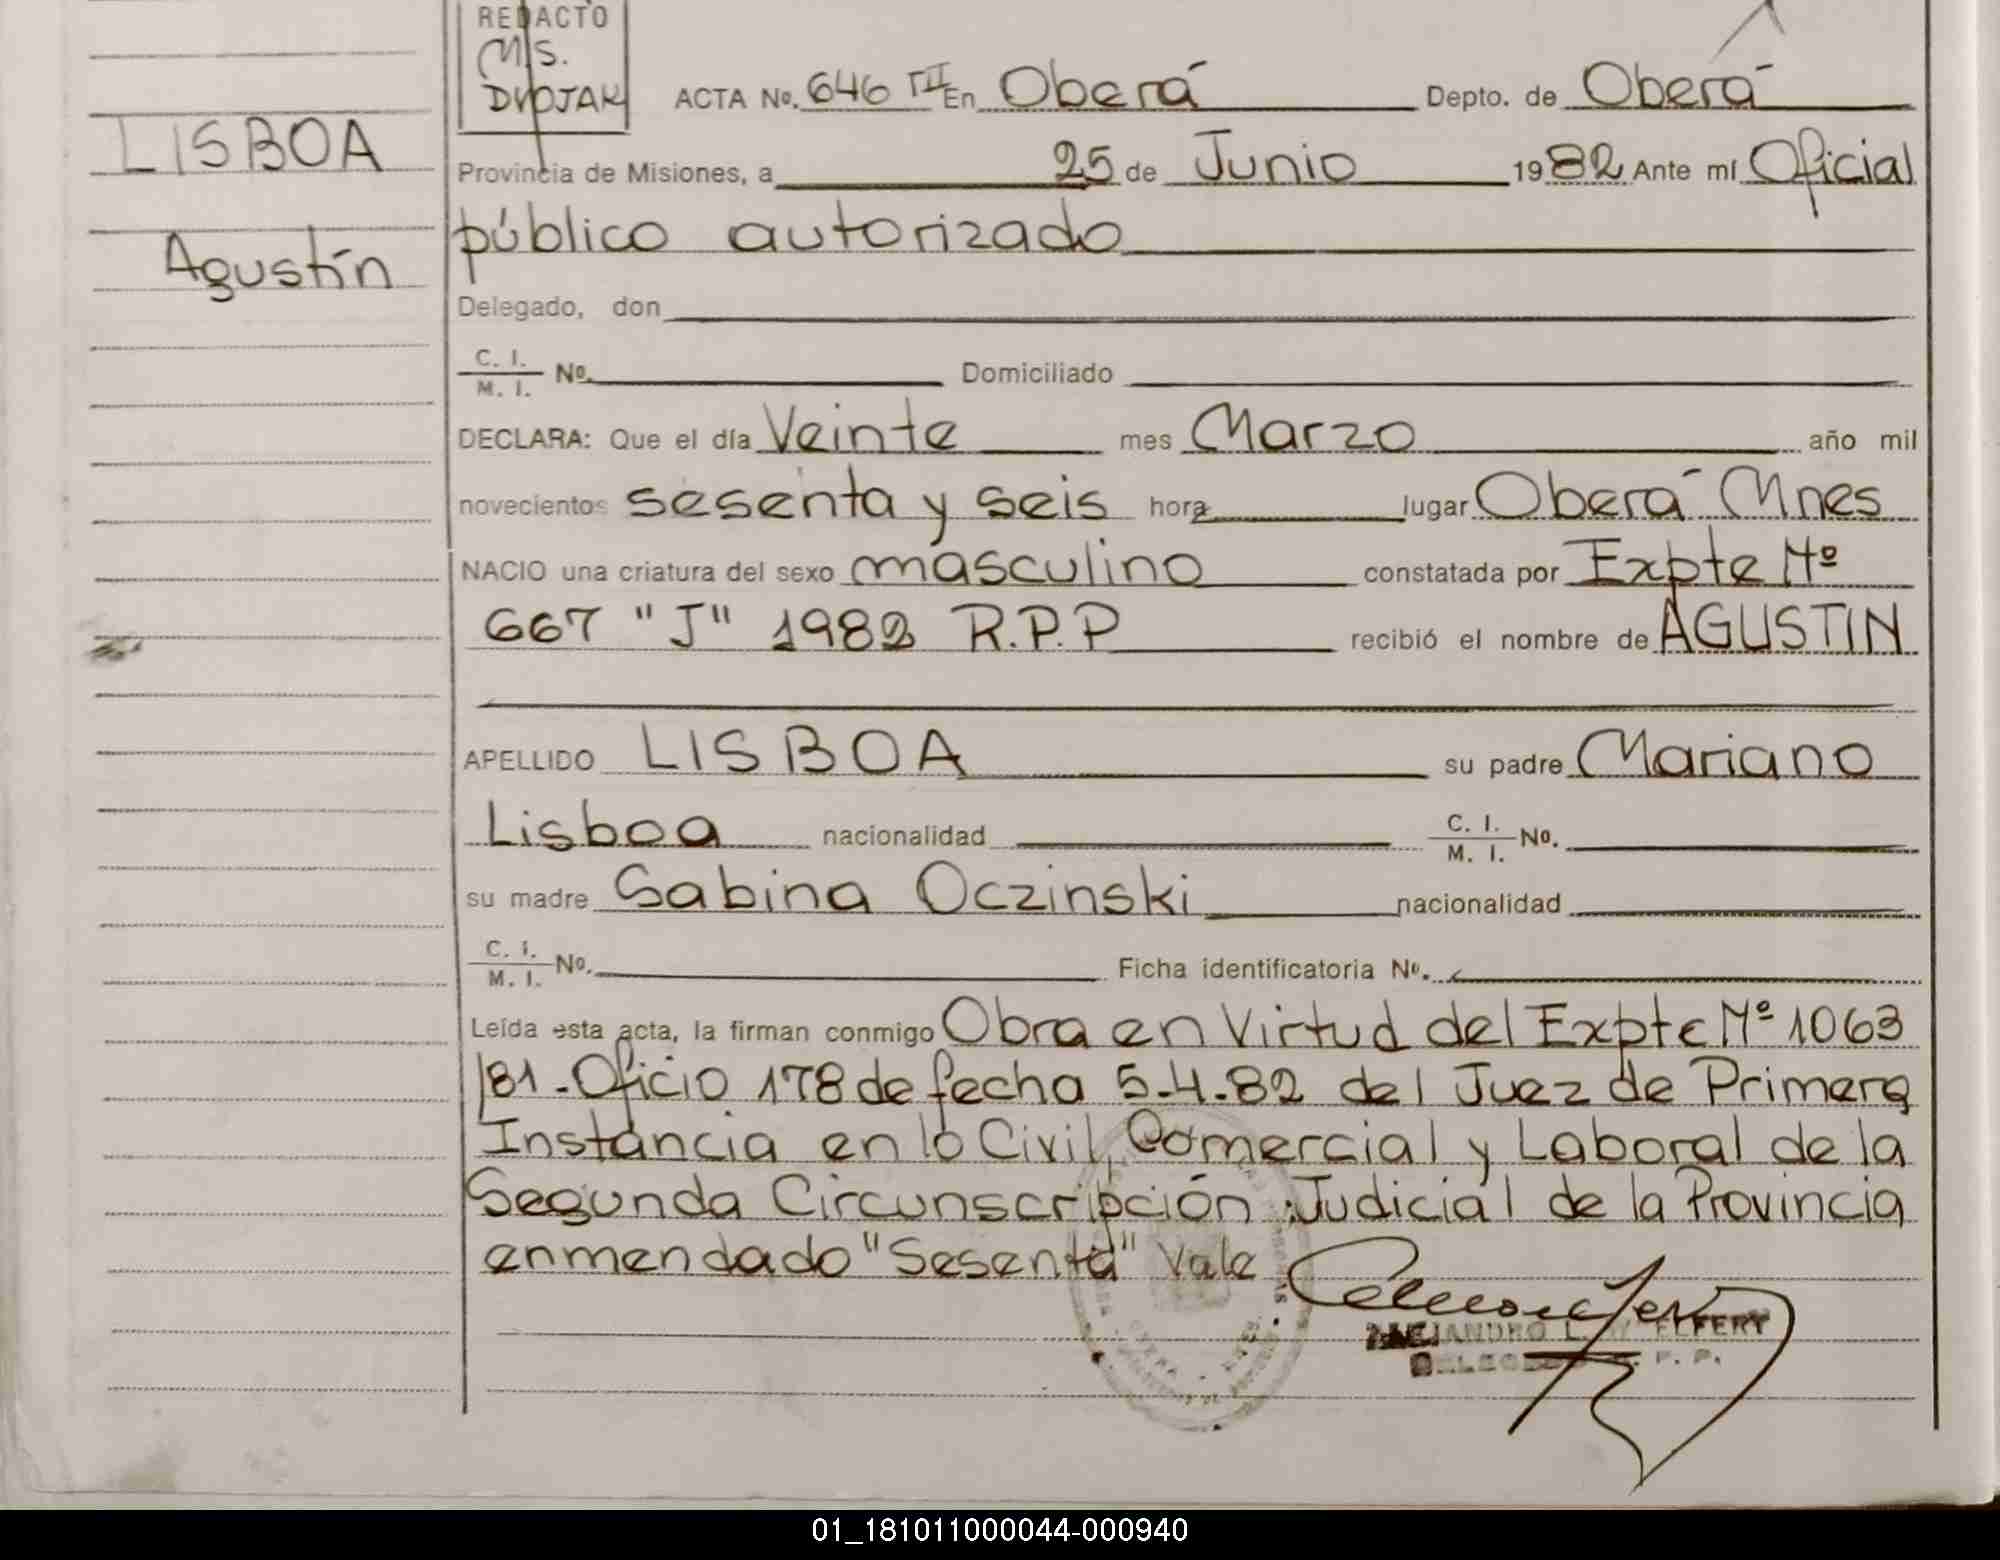 REDACTO
M.S.
DVOJAK
ACTA No. 646 TII En Oberá Depto. de Oberá
LISBOA
Provincia de Misiones, a 25 de Junio 1982 Ante mí Oficial
público autorizado
Agustín
Delegado, don
C. I. / M. I. No. Domiciliado
DECLARA: Que el día Veinte mes Marzo año mil
novecientos sesenta y seis hora lugar Oberá Mnes
NACIO una criatura del sexo masculino constatada por Expte Nº
667 "J" 1982 R.P.P recibió el nombre de AGUSTIN
APELLIDO LISBOA su padre Mariano
Lisboa nacionalidad C. I. / M. I. No.
su madre Sabina Oczinski nacionalidad
C. I. / M. I. No. Ficha identificatoria No.
Leída esta acta, la firman conmigo Obra en Virtud del Expte Nº 1063
/81-Oficio 178 de fecha 5-4-82 del Juez de Primera
Instancia en lo Civil, Comercial y Laboral de la
Segunda Circunscripción Judicial de la Provincia
enmendado "Sesenta" Vale
ALEJANDRO L.
01_181011000044-000940